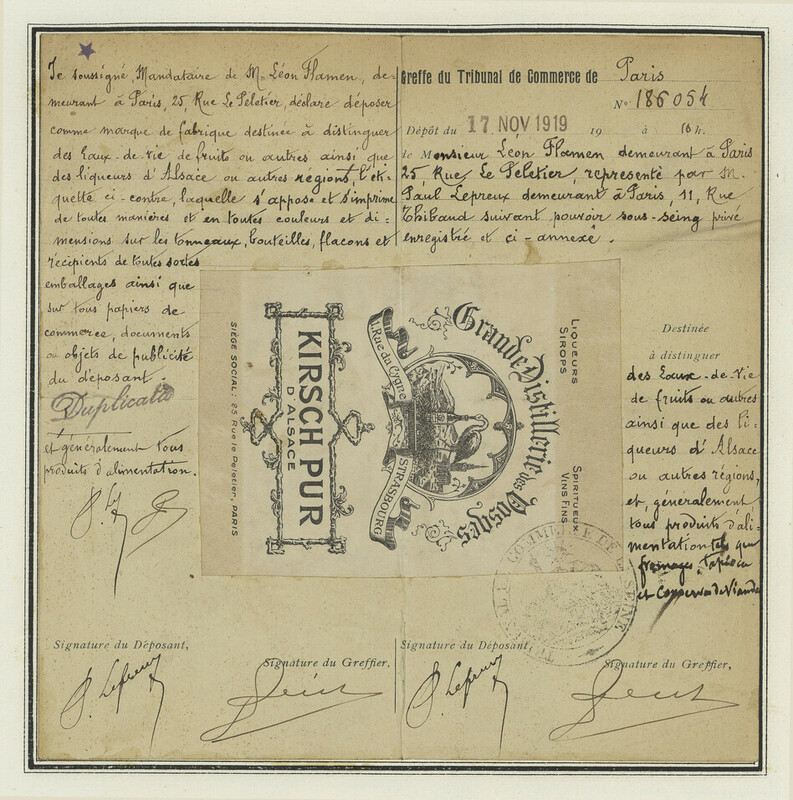 Je soussigné, Mandataire de M. Léon Flamen, de-
meurant à Paris, 25, Rue Le Peletier, déclare déposer
comme marque de fabrique destinée à distinguer
des Eaux-de-vie de fruits ou autres ainsi que
des liqueurs d'Alsace ou autres régions, l'éti-
quette ci-contre, laquelle s'appose et s'imprime
de toutes manières et en toutes couleurs et di-
mensions sur les tonneaux, bouteilles, flacons et
récipients de toutes sortes
emballages ainsi que
sur tous papiers de
commerce, documents
ou objets de publicité
du déposant.
Duplicata
et généralement tous
produits d'alimentation.
Signature du Déposant,
Signature du Greffier,
P. Lepreux
Greffe du Tribunal de Commerce de Paris
N° 186054
Dépôt du 17 NOV 1919 19 à 10 h.
de Monsieur Léon Flamen demeurant à Paris
25 Rue Le Peletier, représenté par M.
Paul Lepreux demeurant à Paris, 11, Rue
Thibaud suivant pouvoir sous-seing privé
enregistré et ci-annexé.
LIQUEURS
SIROPS
SPIRITUEUX
VINS FINS
Grande Distillerie des Vosges
1, Rue du Cygne
STRASBOURG
KIRSCH PUR
D'ALSACE
SIÈGE SOCIAL: 25 Rue le Peletier, PARIS
Destinée
à distinguer
des Eaux-de-Vie
de fruits ou autres
ainsi que des li-
queurs d'Alsace
ou autres régions,
et, généralement
tous produits d'ali-
mentation tels que
fromages, tapioca
et Conserves de Viande
COMMERCE DE SEINE
Signature du Déposant,
Signature du Greffier,
P. Lepreux